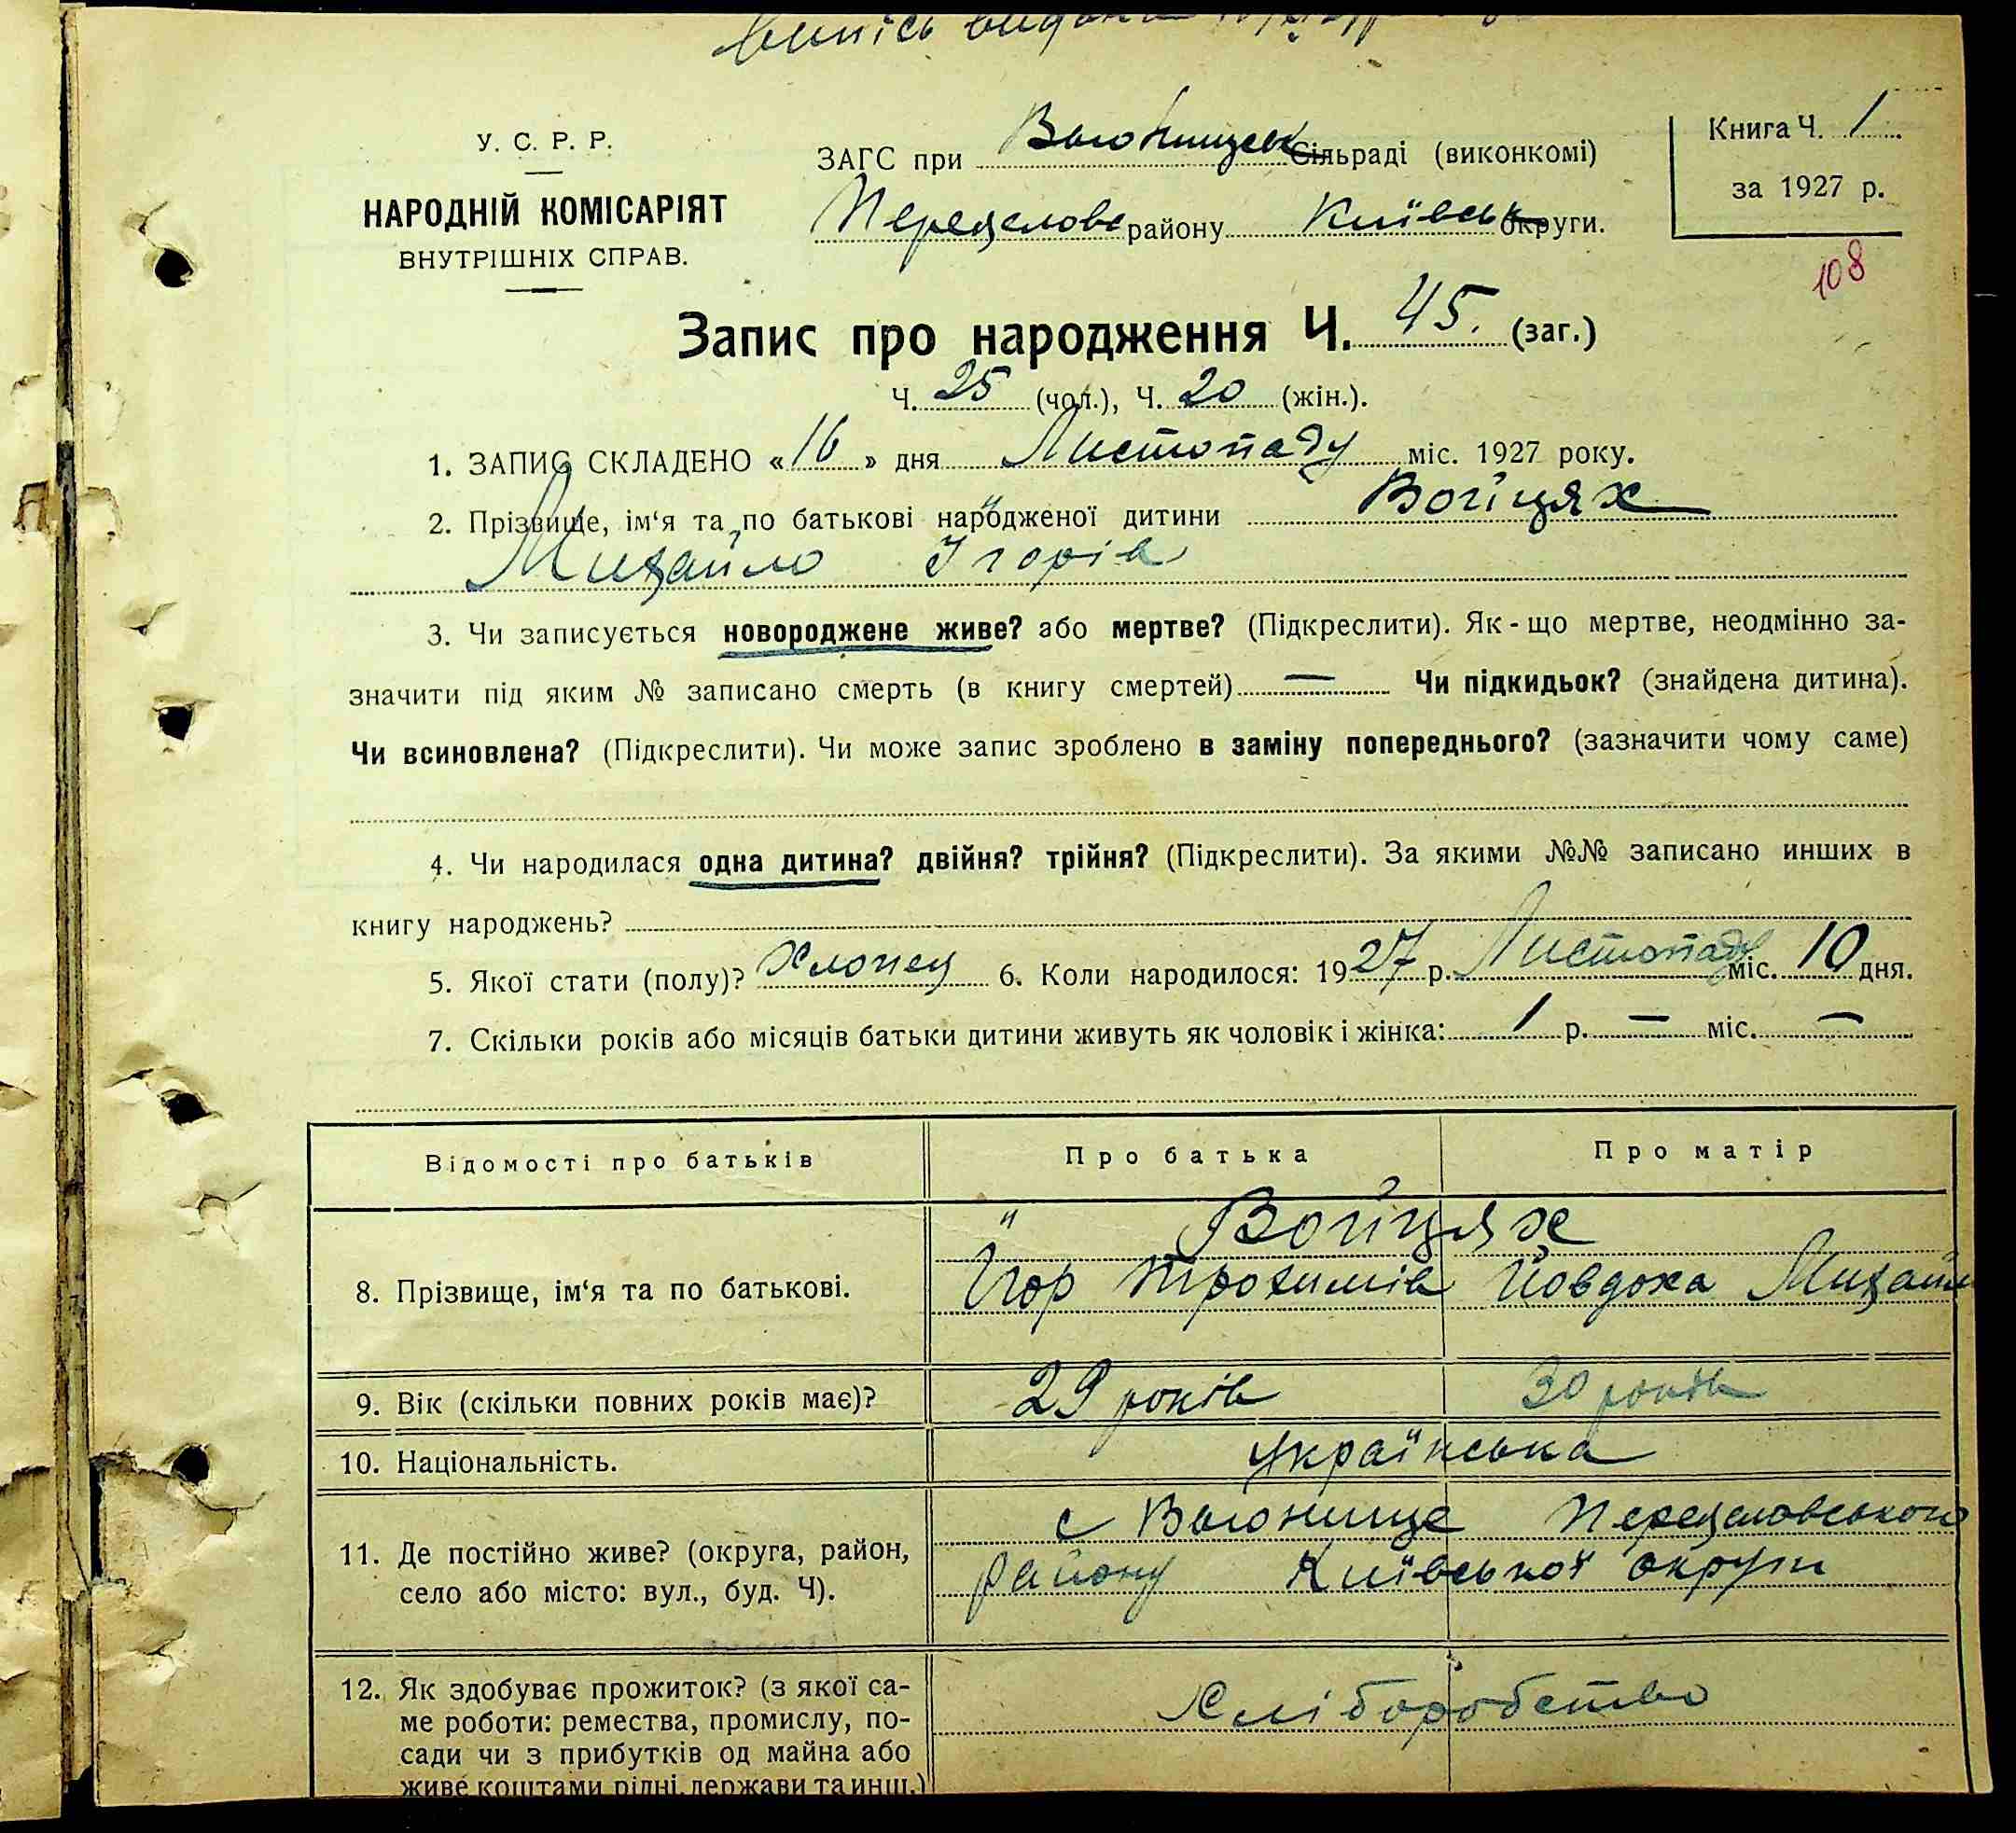 У. С. Р. Р.
НАРОДНІЙ КОМІСАРІЯТ
ВНУТРІШНІХ СПРАВ.
ЗАГС при Вьюнищськ Сільраді (виконкомі)
Переяслове району Київськ округи.
Книга Ч. 1
за 1927 р.
108
Запис про народження Ч. 45. (заг.)
Ч. 25 (чол.), Ч. 20 (жін.).
1. ЗАПИС СКЛАДЕНО «16» дня Листопаду міс. 1927 року.
2. Прізвище, ім‘я та по батькові народженої дитини Войцях
Михайло Ігорів
3. Чи записується новороджене живе? або мертве? (Підкреслити). Як-що мертве, неодмінно за-
значити під яким № записано смерть (в книгу смертей) — Чи підкидьок? (знайдена дитина).
Чи всиновлена? (Підкреслити). Чи може запис зроблено в заміну попереднього? (зазначити чому саме)
4. Чи народилася одна дитина? двійня? трійня? (Підкреслити). За якими №№ записано инших в
книгу народжень?
5. Якої стати (полу)? Хлопец 6. Коли народилося: 1927 р. Листопаду міс. 10 дня.
7. Скільки років або місяців батьки дитини живуть як чоловік і жінка: 1 р. — міс. —
Відомості про батьків Про батька Про матір
8. Прізвище, ім‘я та по батькові.
" Войцях
Ігор Трохимів Йовдоха Михайл
9. Вік (скільки повних років має)? 29 років 30 років
10. Національність. Українська
11. Де постійно живе? (округа, район,
село або місто: вул., буд. Ч).
с Вьюнище Переяславського
району Київської округи
12. Як здобуває прожиток? (з якої са-
ме роботи: ремества, промислу, по-
сади чи з прибутків од майна або
живе коштами рідні, держави та инш.)
Хліборобство